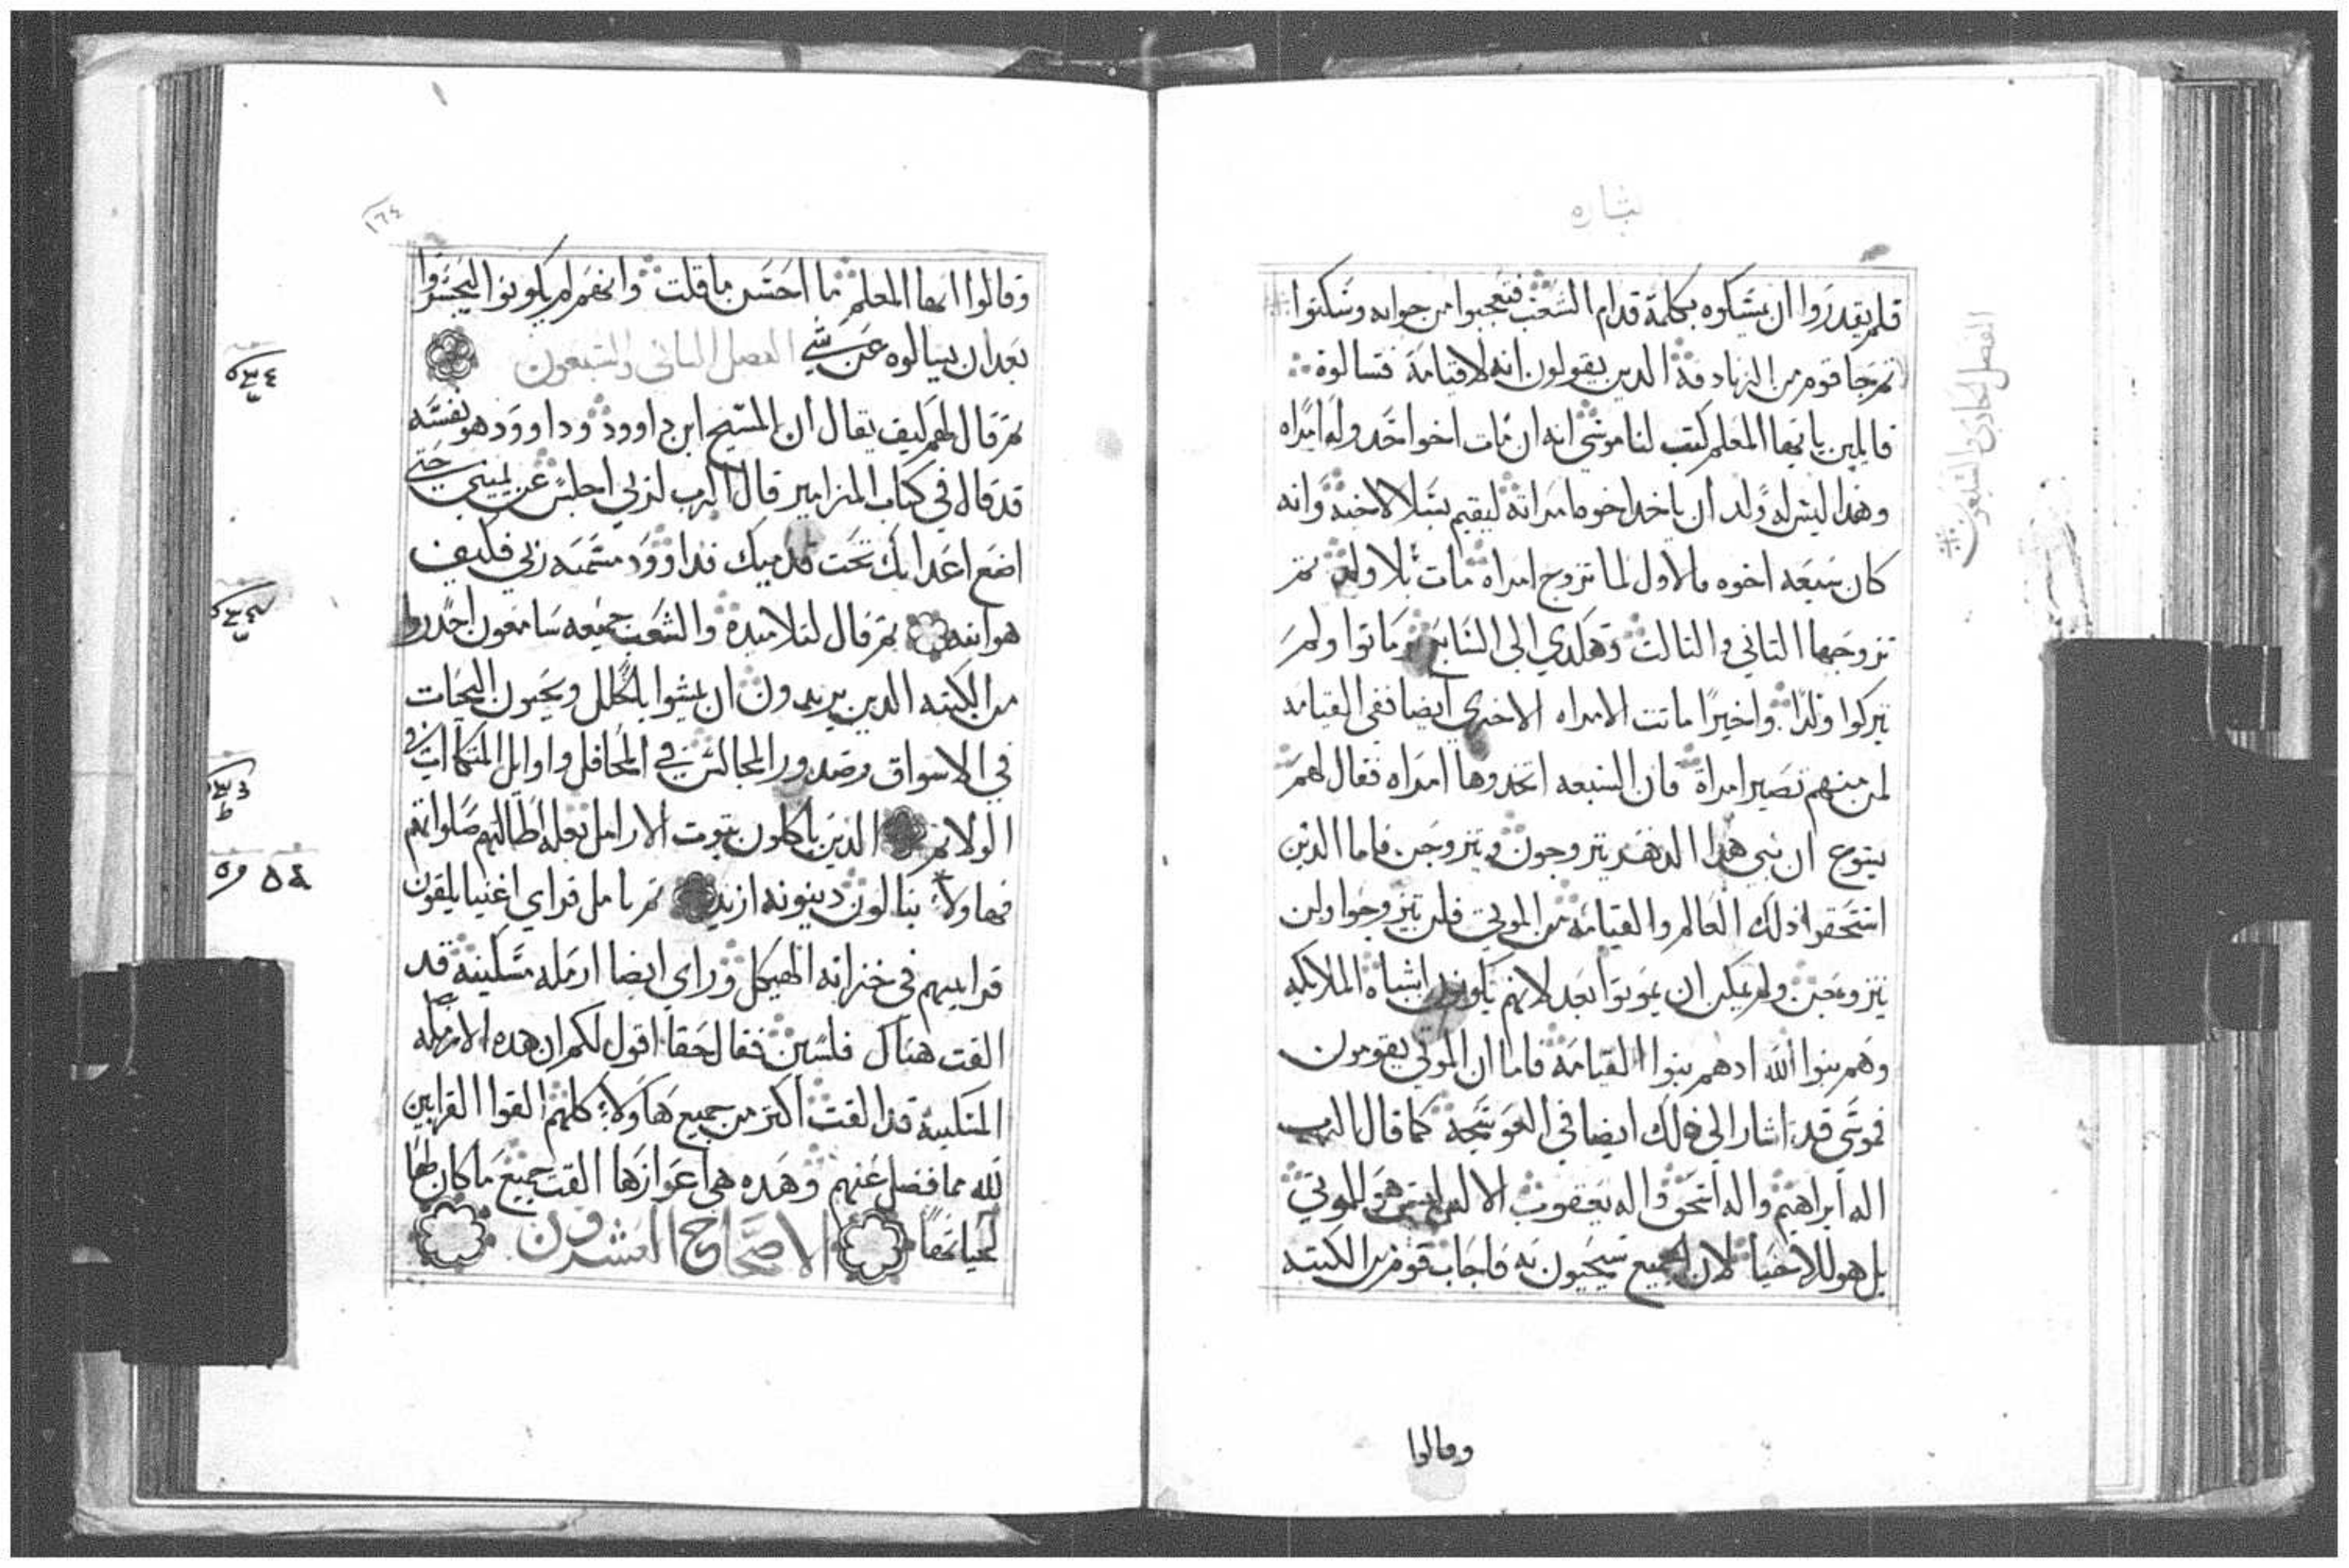 بشاره
فلم يقدروا ان يمسكوه بكلمة قدام الشعب فتعجبوا من جوابه وسكتوا
ثم جا قوم من الزنادقة الدين يقولون انه لا قيامة فسالوه
قايلين يا ايها المعلم كتب لنا موسي انه ان مات اخو احد وله امراه
وهدا ليس له ولد ان ياخد اخوه امراته ليقيم نسلا لاخيه وانه
كان سبعه اخوه فالاول لما تزوج امراه مات بلا ولد ثم
تزوجها التاني والتالت وهكدي الى السابع وماتوا ولم
يتركوا ولدا واخيرا ماتت الامراه الاخري ايضا ففي القيامه
لمن منهم تصير امراة فان السبعه اتخدوها امراه فقال لهم
يسوع ان بني هدا الدهر يتزوجون ويتزوجن فاما الدين
استحقوا دلك العالم والقيامه من الموتي فلن يتزوجوا ولن
يتزوجن ولم يمكن ان يموتوا بعد لانهم يكونون اشباه الملايكه
وهم بنوا الله ادهم بنوا القيامه فاما ان الموتي يقومون
فموسي قد اشار الي دلك ايضا في العوسجه كما قال الرب
اله ابراهيم واله اسحق واله يعقوب الاله ليس هو للموتي
بل هو للاحيا لان الجميع سيحيون به فاجاب قوم من الكتبه
الفصل الحادي والسبعون
وقالوا
١٦٤
وقالوا ايها المعلم ما احسن ما قلت وانهم لم يكونوا ليجسروا
بعد ان يسالوه عن شي الفصل التاني والسبعون
ثم قال لهم كيف يقال ان المسيح ابن داوود وداوود هو نفسه
قد قال في كتاب المزامير قال الرب لربي اجلس عن يميني حتي
اضع اعدايك تحت قدميك فداوود يسميه ربي فكيف
هو ابنه ثم قال لتلاميده والشعب جميعه سامعون احدروا
من الكتبه الدين يريدون ان يمشوا بالحلل ويحبون التحيات
في الاسواق وصدور المجالس في المحافل واوايل المتكاات في
الولايم الدين ياكلون بيوت الارامل بعله اطالتهم صلواتهم
فهاولا ينالون دينونه ازيد ثم تامل فراي اغنيا يلقون
قرابينهم في خزانه الهيكل وراي ايضا ارمله مسكينه قد
القت هناك فلسين فقال حقا اقول لكم ان هده الارمله
المسكينه قد القت اكتر من جميع هاولا كلهم القوا القرابين
لله مما فضل عنهم وهده هي اعوازها القت جميع ما كان لها
لحياتها الاصحاح العشرون